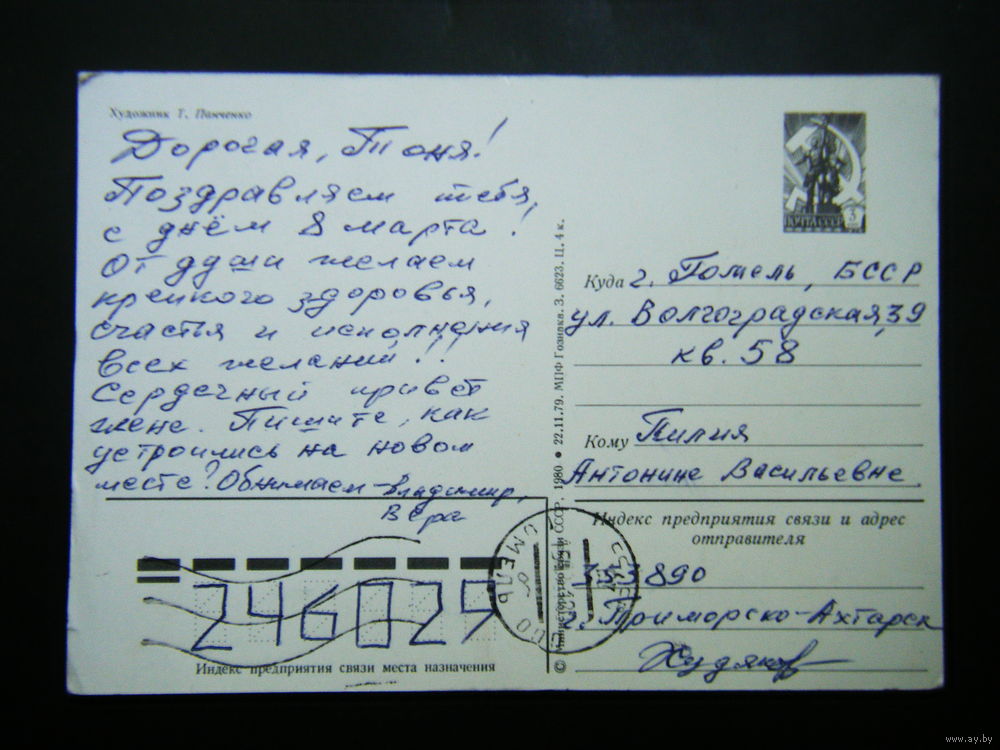 Художник Т. Панченко
Дорогая, Тоня!
Поздравляем тебя,
с днём 8 марта!
От души желаем
крепкого здоровья,
счастья и исполнения
всех желаний!!
Сердечный привет
жене. Пишите, как
устроились на новом
месте? Обнимаем - Владимир,
Вера
246029
Индекс предприятия связи места назначения
© Министерство связи СССР, 1980 • 22.11.79. МПФ Гознака. З. 6623. Ц. 4 к.
ПОЧТА СССР 3
Куда г. Гомель, БССР
ул. Волгоградская, 39
кв. 58
Кому Пилия
Антонине Васильевне
Индекс предприятия связи и адрес
отправителя
890
г. Приморско-Ахтарск
Худяков
ГОМЕЛЬ
www.ay.by